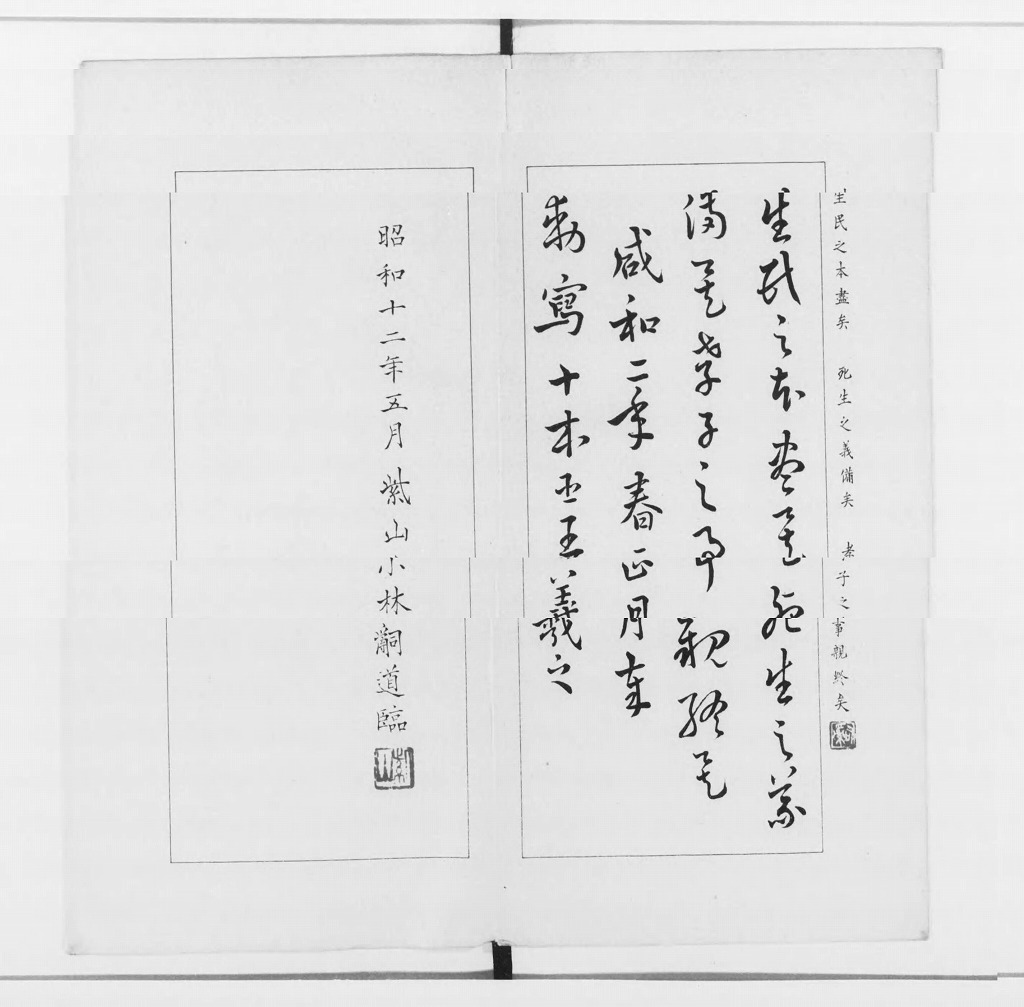 生民之本盡矣　死生之義備矣　孝子之事親終矣
生民之本盡矣死生之義
備矣孝子之事親終矣
咸和二年春正月奉
勅寫十本臣王羲之
昭和十二年五月紫山小林嗣道臨
紫山